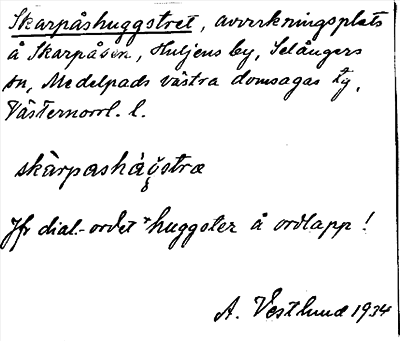 Skarpåshuggstret, avverkningsplats
å Skarpåsen, Huljens by, Selångers
sn, Medelpads västra domsagas tg,
Västernorrl. l.
skàrpasháǥstræ
Jfr dial.-ordet *huggster å ordlapp!
A. Vestlund 1934